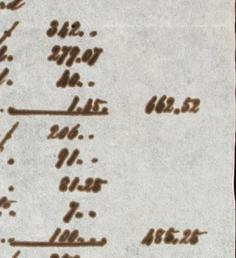 342..
279.07
40..
1.45. 662.52
206..
91..
81.25
7..
100... 485.25